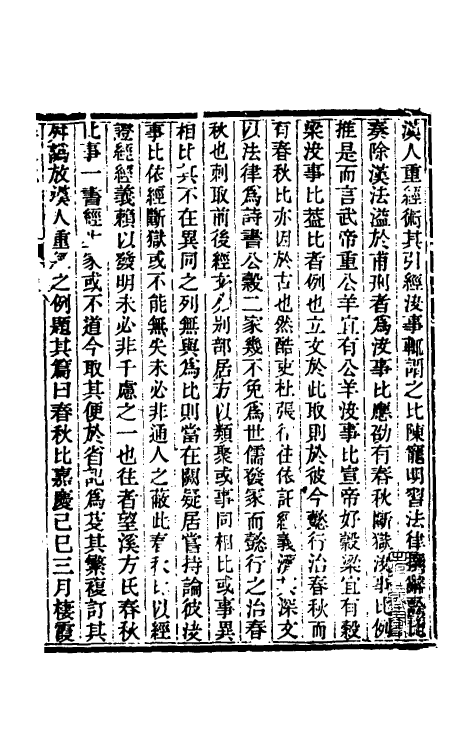 漢人重經術其引經決事輒謂之比陳寵明習法律撰辭訟比
奏除漢法溢於甫刑者為決事比應劭有春秋斷獄決事比例
推是而言武帝重公羊宜有公羊決事比宣帝好穀梁宜有穀
梁決事比葢比者例也立文於此取則於彼今懿行治春秋而
有春秋比亦因於古也然酷吏杜張行往依託經義濟其深文
以法律為詩書公穀二家幾不免為世儒發冡而懿行之治春
秋也刺取前後經文分别部居方以類聚或事同相比或事異
相比其不在異同之列無與為比則當在闕疑居嘗持論彼決
事比依經斷獄或不能無失未必非通人之蔽此春秋比以經
證經經義賴以發明未必非千慮之一也往者望溪方氏春秋
比事一書經生家或不道今取其便於省記為芟其繁複訂其
舛譌放漢人重經之例題其篇曰春秋比嘉慶己巳三月棲霞